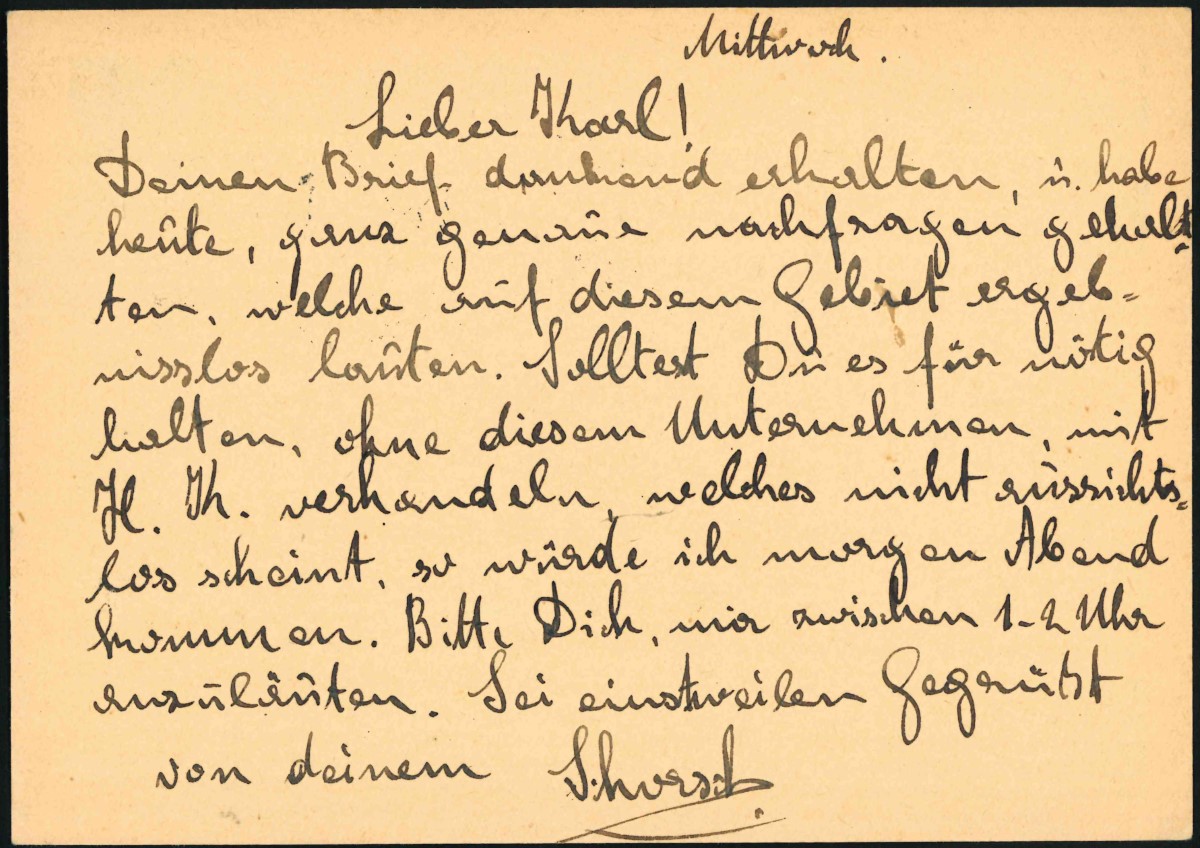 Mittwoch.
Lieber Karl!
Deinen Brief dankend erhalten, u. habe
heute, ganz genaue nachfragen gehal=
ten, welche auf diesem Gebiet ergeb=
nisslos lauten. Solltest Du es für nötig
halten, ohne diesem Unternehmen, mit
H. K. verhandeln, welches nicht aussichts=
los scheint, so würde ich morgen Abend
kommen. Bitte Dich, mir zwischen 1-2 Uhr
anzuläuten. Sei einstweilen Gegrüßt
von deinem Schorsch.